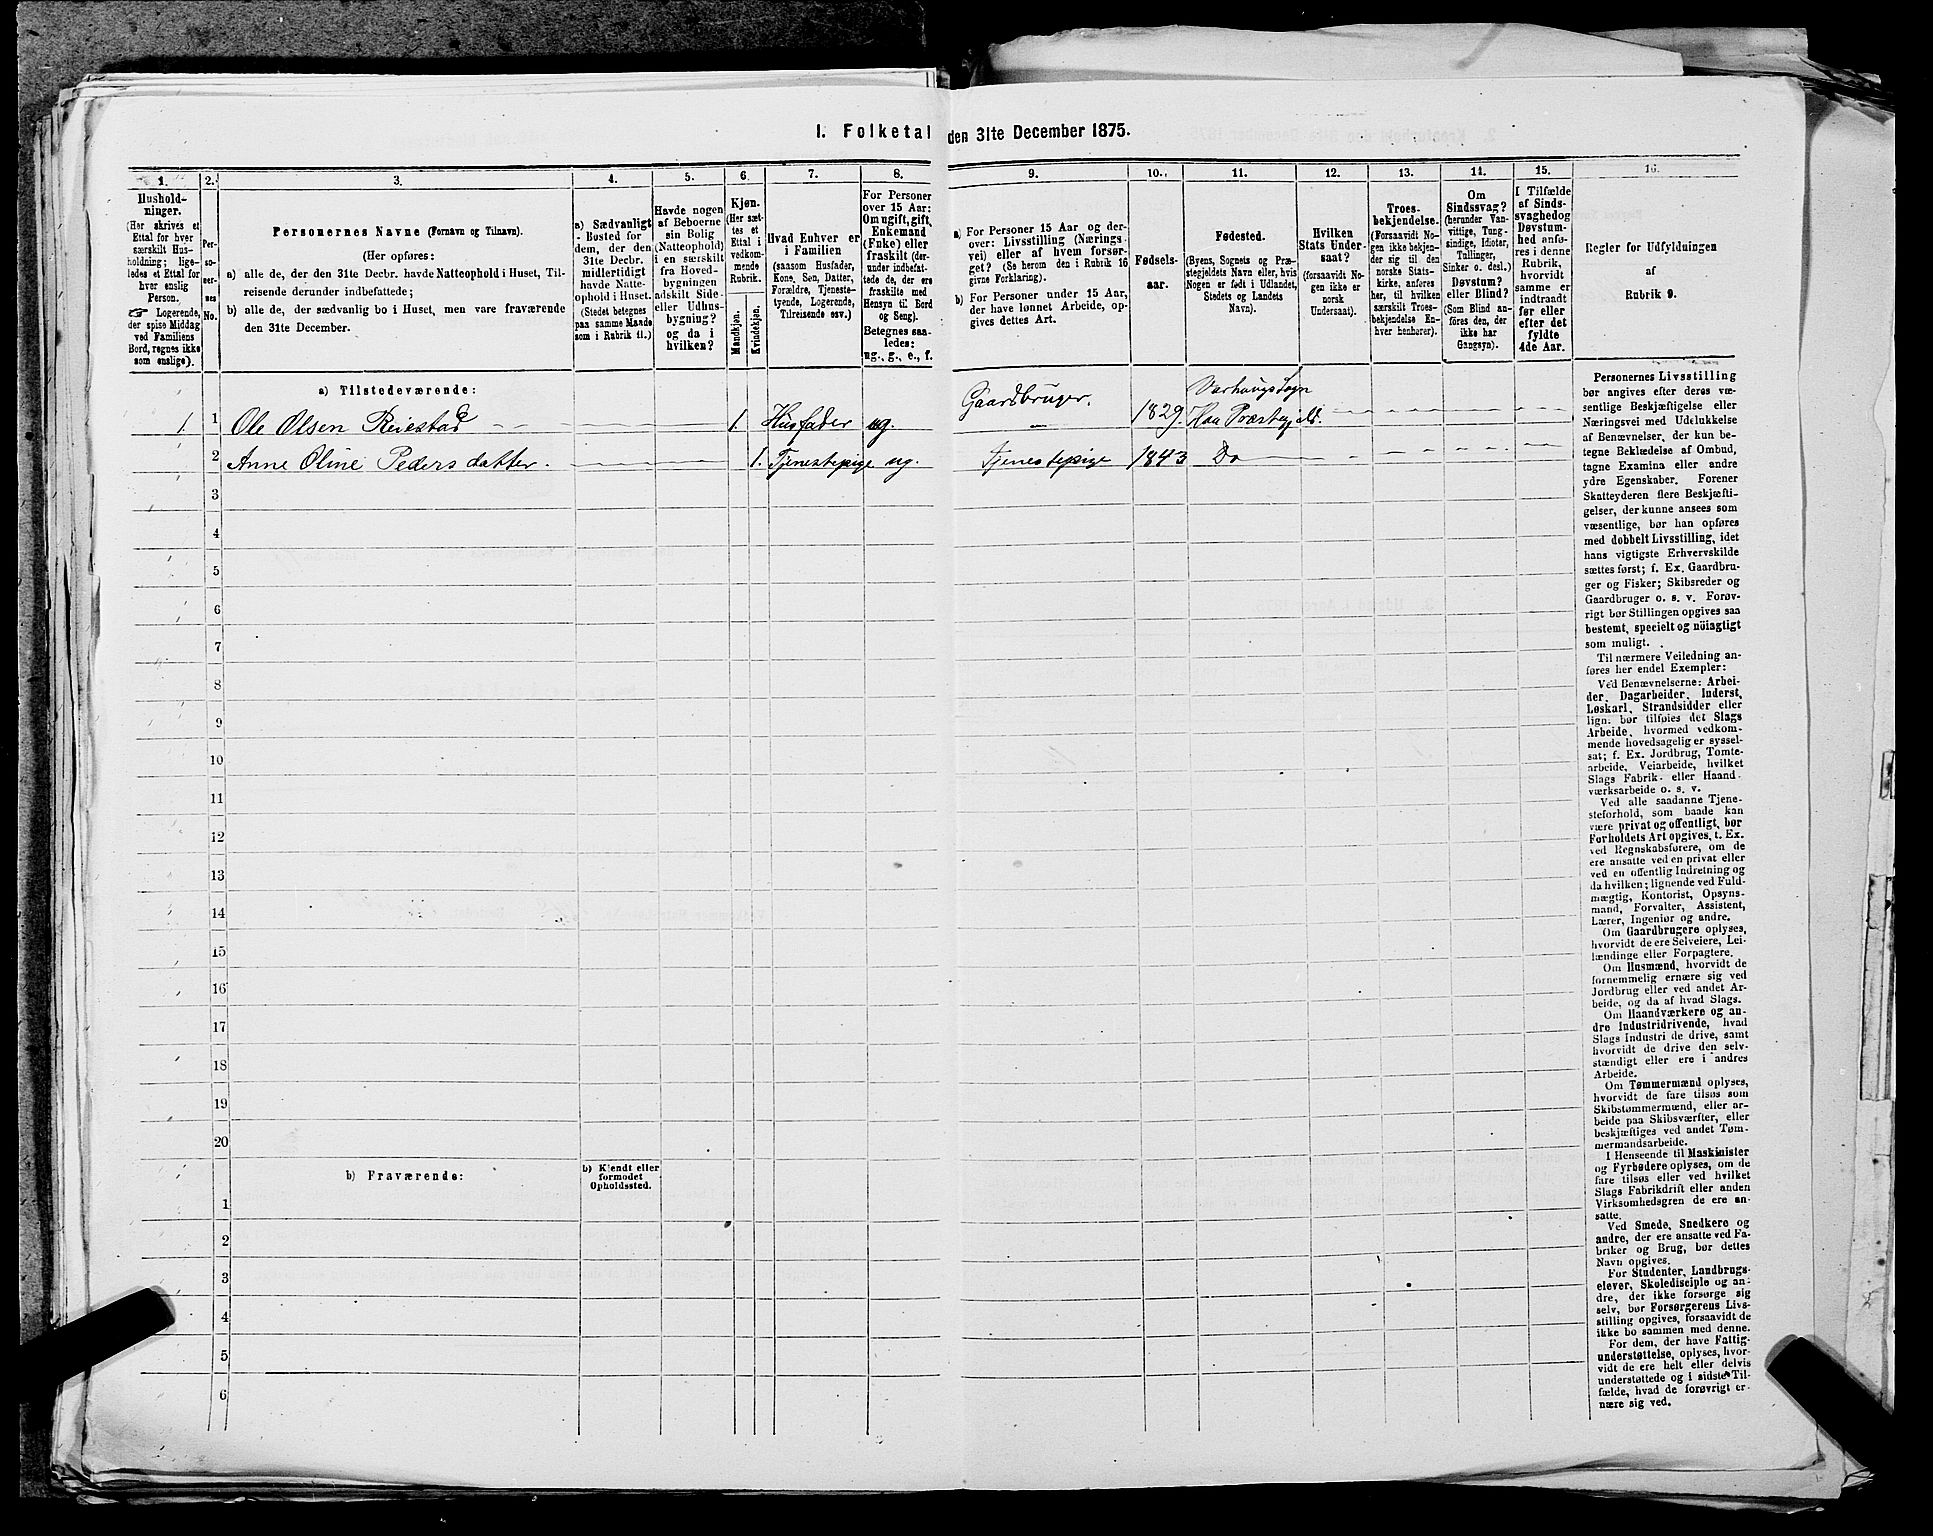 I. Folketal den 31te December 1875.
1. 2. 3. 4. 5. 6. 7. 8. 9. 10. 11. 12. 13. 14. 15. 16.
Hushold-
ninger.
(Her skrives et
Ettal for hver
særskilt Hus-
holdning; lige-
ledes et Ettal for
hver enslig
Person.
☞ Logerende,
der spise Middag
ved Familiens
Bord, regnes ikke
som enslige).
Per-
so-
ner-
nes
No.
Personernes Navne (Fornavn og Tilnavn).
(Her opføres:
a) alle de, der den 31te Decbr. havde Natteophold i Huset, Til-
reisende derunder indbefattede;
b) alle de, der sædvanlig bo i Huset, men vare fraværende
den 31te December.
a) Sædvanligt
Bosted for
dem, der den
31te Decbr.
midlertidigt
havde Natte-
ophold i Huset.
(Stedet betegnes
paa samme Maade
som i Rubrik 11.)
Havde nogen
af Beboerne
sin Bolig
(Natteophold)
i en særskilt
fra Hoved-
bygningen
adskilt Side-
eller Udhus-
bygning?
og da i
hvilken?
Kjøn.
(Her sæt-
tes et
Ettal i
vedkom-
mende
Rubrik.
Mandkjøn.
Kvindekjøn.
Hvad Enhver er
i Familien
(saasom Husfader,
Kone, Søn, Datter,
Forældre, Tjeneste-
tyende, Logerende,
Tilreisende osv.)
For Personer
over 15 Aar:
Om ugift, gift,
Enkemand
(Enke) eller
fraskilt (der-
under indbefat-
tede de, der ere
fraskilte med
Hensyn til Bord
og Seng).
Betegnes saa-
ledes:
ug., g., e., f.
a) For Personer 15 Aar og der-
over: Livsstilling (Nærings-
vei) eller af hvem forsør-
get? (Se herom den i Rubrik 16
givne Forklaring).
b) For Personer under 15 Aar,
der have lønnet Arbeide, op-
gives dettes Art.
Fødsels-
aar.
Fødested.
(Byens, Sognets og Præ-
stegjeldets Navn eller, hvis
Nogen er født i Udlandet,
Stedets og Landets
Navn).
Hvilken
Stats Under-
saat?
(forsaavidt No-
gen ikke er
norsk
Undersaat).
Troes-
bekjendelse.
(Forsaavidt No-
gen ikke bekjen-
der sig til den
norske Stats-
kirke, anføres
her, til hvilken
særskilt Troes-
bekjendelse En-
hver henhører).
Om
Sindssvag?
(herunder Van-
vittige, Tung-
sindige, Idioter,
Tullinger,
Sinker o. desl.)
Døvstum?
eller Blind?
(Som Blind an-
føres den, der
ikke har
Gangsyn).
I Tilfælde
af Sinds-
svaghed og
Døvstum-
hed anfø-
res i denne
Rubrik,
hvorvidt
samme er
indtraadt
før eller
efter det
fyldte
4de Aar.
Regler for Udfyldningen
af
Rubrik 9.
a) Tilstedeværende:
1 1 Ole Olsen Reiestad 1. Husfader ug. Gaardbruger. 1829. Varhaugs Sogn
Haa Præstegjeld.
2 Anne Oline Pedersdatter. 1. Tjenestepige ug. Tjenestepige 1843 Do
3
4
5
6
7
8
9
10
11
12
13
14
15
16
17
18
19
20
b) Fraværende:
b) Kjendt eller
formodet
Opholdssted.
1
2
3
4
5
6
Personernes Livsstilling
bør angives efter deres væ-
sentlige Beskjæftigelse eller
Næringsvei med Udelukkelse
af Benævnelser, der kun be-
tegne Beklædelse af Ombud,
tagne Examina eller andre
ydre Egenskaber. Forener
Skatteyderen flere Beskjæfti-
gelser, der kunne ansees som
væsentlige, bør han opføres
med dobbelt Livsstilling, idet
hans vigtigste Erhvervskilde
sættes først; f. Ex. Gaardbru-
ger og Fisker; Skibsreder og
Gaardbruger o. s. v. Forøv-
rigt bør Stillingen opgives saa
bestemt, specielt og nøiagtigt
som muligt.
Til nærmere Veiledning an-
føres her endel Exempler:
Ved Benævnelserne: Arbei-
der, Dagarbeider, Inderst,
Løskarl, Strandsidder eller
lign. bør tilføies det Slags
Arbeide, hvormed vedkom-
mende hovedsagelig er syssel-
sat; f. Ex. Jordbrug, Tomte-
arbeide, Veiarbeide, hvilket
Slags Fabrik- eller Haand-
værksarbeide o. s. v.
Ved alle saadanne Tjene-
steforhold, som baade kan
være privat og offentligt, bør
Forholdets Art opgives, t. Ex.
ved Regnskabsførere, om de
ere ansatte ved en privat eller
ved en offentlig Indretning og
da hvilken; lignende ved Fuld-
mægtig, Kontorist, Opsyns-
mand, Forvalter, Assistent,
Lærer, Ingeniør og andre.
Om Gaardbrugere oplyses,
hvorvidt de ere Selveiere, Lei-
lændinge eller Forpagtere.
Om Husmænd, hvorvidt de
fornemmelig ernære sig ved
Jordbrug eller ved andet Ar-
beide, og da af hvad Slags.
Om Haandværkere og an-
dre Industridrivende, hvad
Slags Industri de drive, samt
hvorvidt de drive den selv-
stændigt eller ere i andres
Arbeide.
Om Tømmermænd oplyses,
hvorvidt de fare tilsøs som
Skibstømmermænd, eller ar-
beide paa Skibsværfter, eller
beskjæftiges ved andet Tøm-
mermandsarbeide.
I Henseende til Maskinister
og Fyrbødere oplyses, om de
fare tilsøs eller ved hvilket
Slags Fabrikdrift eller anden
Virksomhedsgren de ere an-
satte.
Ved Smede, Snedkere og
andre, der ere ansatte ved Fa-
briker og Brug, bør dettes
Navn opgives.
For Studenter, Landbrugs-
elever, Skoledisciple og an-
dre, der ikke forsørge sig
selv, bør Forsørgerens Livs-
stilling opgives, forsaavidt de
ikke bo sammen med denne.
For dem, der have Fattig-
understøttelse, oplyses, hvor-
vidt de ere helt eller delvis
understøttede og i sidste Til-
fælde, hvad de forøvrigt er-
nære sig ved.